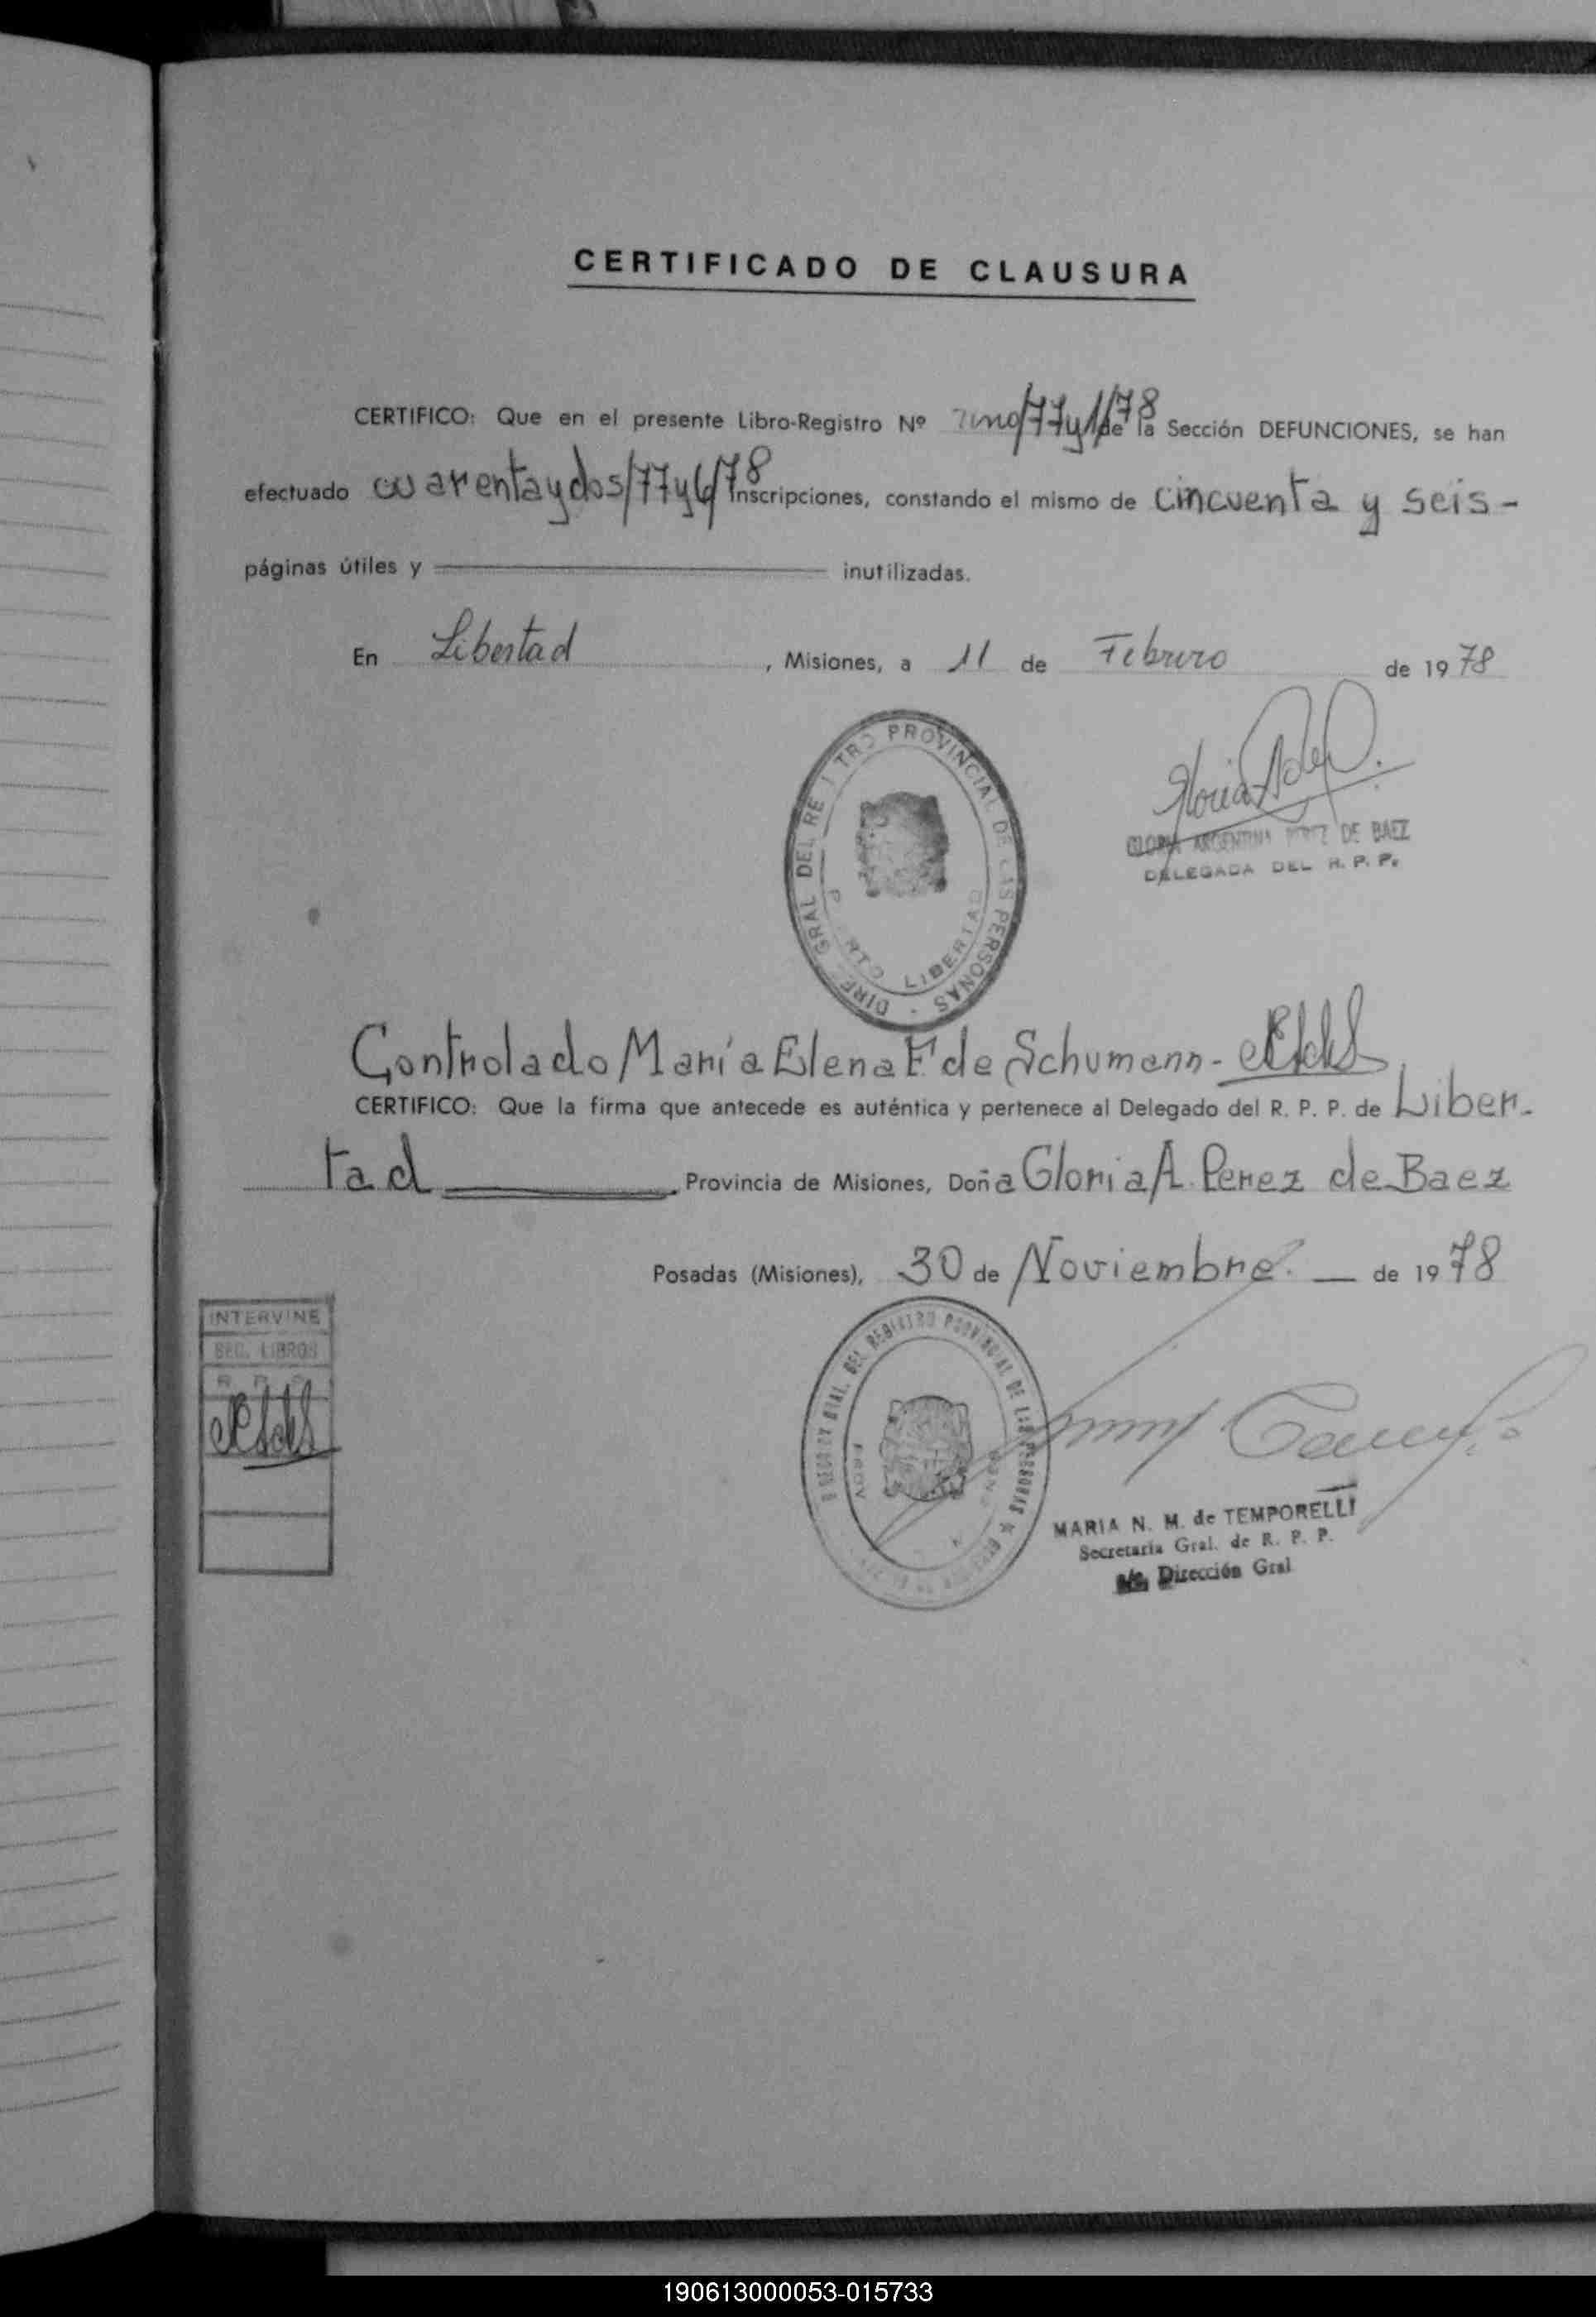 CERTIFICADO DE CLAUSURA
CERTIFICO: Que en el presente Libro-Registro Nº uno/77y1/78 de la Sección DEFUNCIONES, se han
efectuado cuarentaydos/77y6/78 Inscripciones, constando el mismo de cincuenta y seis-
páginas útiles y inutilizadas.
En Libertad, Misiones, a 11 de Febrero de 1978
DIRE GRAL DEL RE I TRO PROVINCIAL DE LAS PERSONAS
P RTO LIBERTAD
GLORIA ARGENTINA PEREZ DE BAEZ
DELEGADA DEL R. P. P.
Controlado María Elena F de Schumann-
CERTIFICO: Que la firma que antecede es auténtica y pertenece al Delegado del R. P. P. de Liber-
tad Provincia de Misiones, Doña Gloria A. Perez de Baez
Posadas (Misiones), 30 de Noviembre. — de 1978
INTERVINE
SEC. LIBROS
R. P. P.
DEL REGISTRO PROVINCIAL DE LAS PERSONAS
MARIA N. M. de TEMPORELLI
Secretaria Gral. de R. P. P.
a/c. Dirección Gral
190613000053-015733